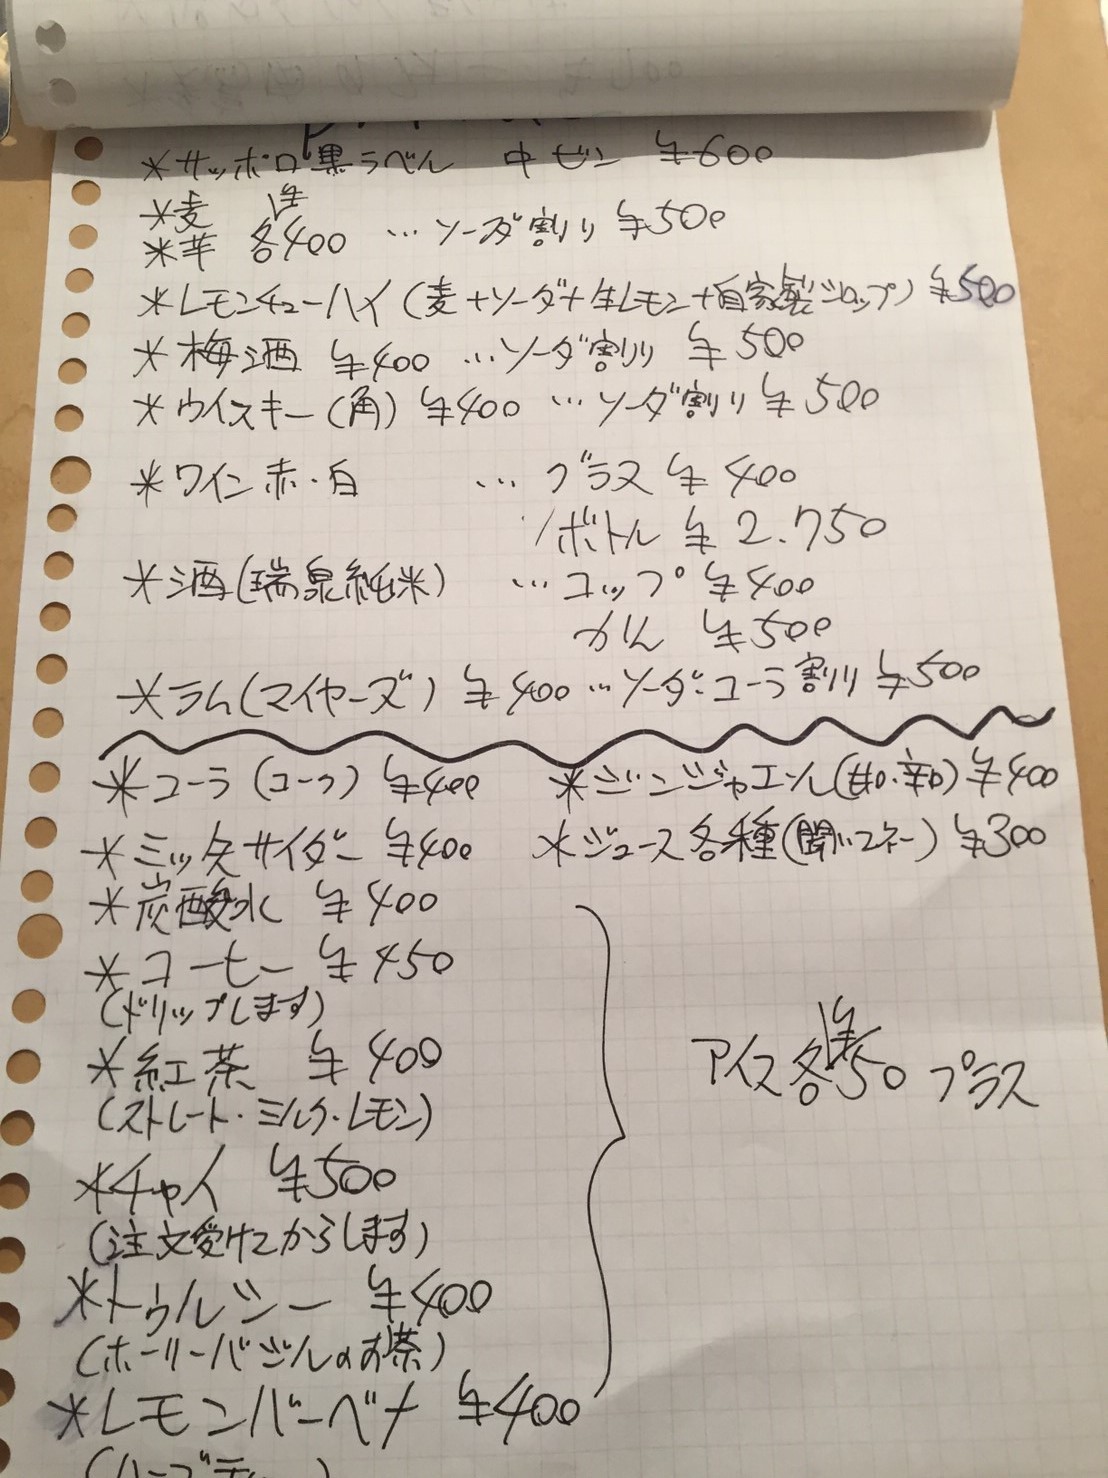 *サッポロ黒ラベル 中ビン ¥600
*麦
*芋 各¥400 …ソーダ割り ¥500
*レモンチューハイ(麦+ソーダ+生レモン+自家製シロップ) ¥500
*梅酒 ¥400 …ソーダ割り ¥500
*ウイスキー(角) ¥400 …ソーダ割り ¥500
*ワイン 赤・白 …グラス ¥400
ボトル ¥2.750
*酒(瑞泉純米) …コップ ¥400
かん ¥500
*ラム(マイヤーズ) ¥400…ソーダ・コーラ割り ¥500
*コーラ(コーク) ¥400 *ジンジャエール(甘口・辛口) ¥400
*ミツ矢サイダー ¥400 *ジュース各種(聞いてネー) ¥300
*炭酸水 ¥400
*コーヒー ¥450
(ドリップします)
*紅茶 ¥400
アイス各¥50プラス
(ストレート・ミルク・レモン)
*チャイ ¥500
(注文受けてからします)
*トゥルシー ¥400
(ホーリーバジルのお茶)
*レモンバーベナ ¥400
(ハーブティー)